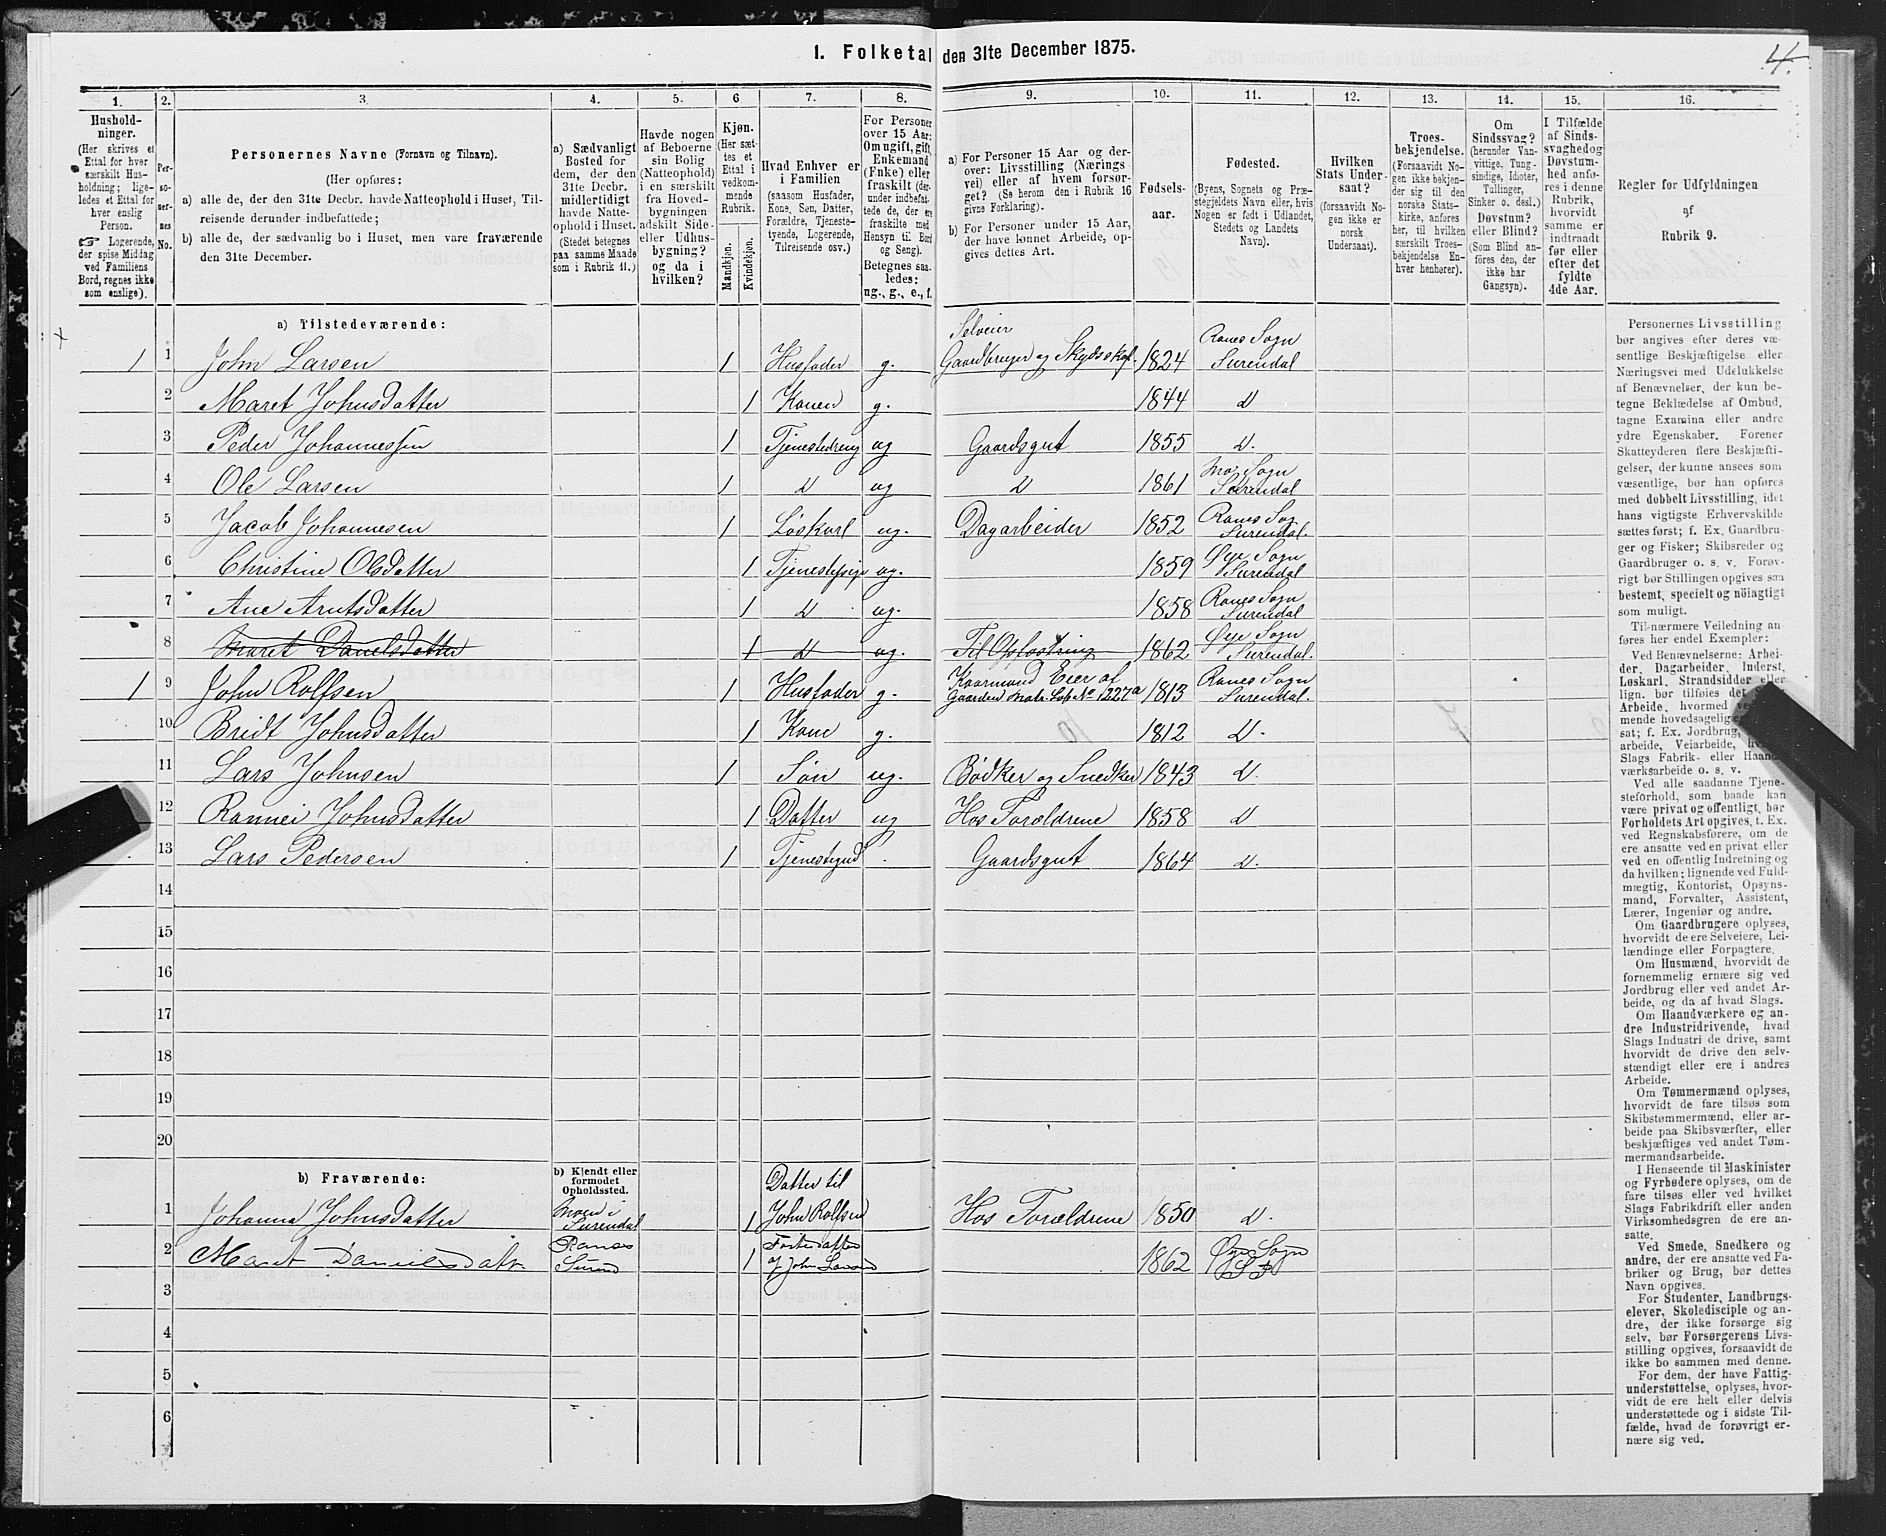 1. Folketal den 31te December 1875.
4.
1. 2. 3. 4. 5. 6 7. 8. 9. 10. 11. 12. 13. 14. 15. 16.
Hushold-
ninger.
(Her skrives et
Ettal for hver
særskilt Hus-
holdning; lige-
ledes et Ettal for
hver enslig
Person.
☞ Logerende,
der spise Middag
ved Familiens
Bord, regnes ikke
som enslige).
Per-
so-
ner-
nes
No.
Personernes Navne (Fornavn og Tilnavn).
(Her opføres:
a) alle de, der den 31te Decbr. havde Natteophold i Huset, Til-
reisende derunder indbefattede;
b) alle de, der sædvanlig bo i Huset, men vare fraværende
den 31te December.
a) Sædvanligt
Bosted for
dem, der den
31te Decbr.
midlertidigt
havde Natte-
ophold i Huset.
(Stedet betegnes
paa samme Maade
som i Rubrik 11.)
Havde nogen
af Beboerne
sin Bolig
(Natteophold)
i en særskilt
fra Hoved-
bygningen
adskilt Side-
eller Udhus-
bygning?
og da i
hvilken?
Kjøn.
(Her sæt-
tes et
Ettal i
vedkom-
mende
Rubrik.
Mandkjøn.
Kvindekjøn.
Hvad Enhver er
i Familien
(saasom Husfader,
Kone, Søn, Datter,
Forældre, Tjeneste-
tyende, Logerende,
Tilreisende osv.)
For Personer
over 15 Aar:
Om ugift, gift,
Enkemand
(Enke) eller
fraskilt (der-
under indbefat-
tede de, der ere
fraskilte med
Hensyn til Bord
og Seng).
Betegnes saa-
ledes:
ug., g., e., f.
a) For Personer 15 Aar og der-
over: Livsstilling (Nærings
vei) eller af hvem forsør-
get? (Se herom den i Rubrik 16
givne Forklaring).
b) For Personer under 15 Aar,
der have lønnet Arbeide, op-
gives dettes Art.
Fødsels-
aar.
Fødested.
(Byens, Sognets og Præ-
stegjeldets Navn eller, hvis
Nogen er født i Udlandet,
Stedets og Landets
Navn).
Hvilken
Stats Under-
saat?
(forsaavidt No-
gen ikke er
norsk
Undersaat).
Troes-
bekjendelse.
(Forsaavidt No-
gen ikke bekjen-
der sig til den
norske Stats-
kirke, anføres
her, til hvilken
særskilt Troes-
bekjendelse En-
hver henhører).
Om
Sindssvag?
(herunder Van-
vittige, Tung-
sindige, Idioter,
Tullinger,
Sinker o. desl.)
Døvstum?
eller Blind?
(Som Blind an-
føres den, der
ikke har
Gangsyn).
I Tilfælde
af Sinds-
svaghed og
Døvstum-
hed anfø-
res i denne
Rubrik,
hvorvidt
samme er
indtraadt
før eller
efter det
fyldte
4de Aar.
Regler for Udfyldningen
af
Rubrik 9.
a) Tilstedeværende:
1 1 John Larsen 1 Husfader g. Selveier Gaardbruger og Skydsskaf. 1824 Ranes Sogn Surendal
2 Maret Johnsdatter 1 Konen g. 1844 d
3 Peder Johannessen 1 Tjenestedreng ug Gaardsgut 1855 d.
4 Ole Larsen 1 d ug d 1861 Mo Sogn Surendal
5 Jacob Johannesen 1 Løskarl ug. Dagarbeider 1852 Ranes Sog Surendal.
6 Christine Olsdatter 1 Tjenestepige ug. 1859 Øye Sogn Surendal
7 Ane Arntsdatter 1 d ug. 1858 Ranes Sogn Surendal
8 Maret Danelsdatter 1 d ug. Til Opfostring 1862 Øye Sogn Surendal.
1 9 John Rolfsen 1 Husfader g. Kaarmand Eier af Gaarden Matr. Løb No 1227a 1813 Ranes Sogn Surendal.
10 Bridt Johnsdatter 1 Kone g. 1812 d.
11 Lars Johnsen 1 Søn ug. Bødker og Snedker 1843 d.
12 Rannei Johnsdatter 1 Datter ug Hos Forældrene 1858 d
13 Lars Pedersen 1 Tjenestegud Gaardsgut 1864 d.
14
15
16
17
18
19
20
b) Fraværende:
b) Kjendt eller
formodet
Opholdssted.
1 Johanna Johnsdatter Moen i Surendal 1 Datter til John Rolfsen Hos Forældrene 1850 d.
2 Maret Danielsdatr Ranes Surend 1 Fosterdatter af John Larsen 1862 Øye Sogn
3
4
5
6
Personernes Livsstilling
bør angives efter deres væ-
sentlige Beskjæftigelse eller
Næringsvei med Udelukkelse
af Benævnelser, der kun be-
tegne Beklædelse af Ombud,
tagne Examina eller andre
ydre Egenskaber. Forener
Skatteyderen flere Beskjæfti-
gelser, der kunne ansees som
væsentlige, bør han opføres
med dobbelt Livsstilling, idet
hans vigtigste Erhvervskilde
sættes først; f. Ex. Gaardbru-
ger og Fisker; Skibsreder og
Gaardbruger o. s. v. Forøv-
rigt bør Stillingen opgives saa
bestemt, specielt og nöiagtigt
som muligt.
Til nærmere Veiledning an-
føres her endel Exempler:
Ved Benævnelserne: Arbei-
der, Dagarbeider, Inderst,
Løskarl, Strandsidder eller
lign. bør tilføies det
Arbeide, hvormed
mende hovedsagelig
sat; f. Ex. Jordbrug,
arbeide, Veiarbeide,
Slags Fabrik- eller Haand-
værksarbeide o. s. v.
Ved alle saadanne Tjene-
steforhold, som baade kan
være privat og offentligt, bør
Forholdets Art opgives, t. Ex.
ved Regnskabsførere, om de
ere ansatte ved en privat eller
ved en offentlig Indretning og
da hvilken; lignende ved Fuld-
mægtig, Kontorist, Opsyns-
mand, Forvalter, Assistent,
Lærer, Ingeniør og andre.
Om Gaardbrugere oplyses,
hvorvidt de ere Selveiere, Lei-
lændinge eller Forpagtere.
Om Husmænd, hvorvidt de
fornemmelig ernære sig ved
Jordbrug eller ved andet Ar-
beide, og da af hvad Slags.
Om Haandværkere og an-
dre Industridrivende, hvad
Slags Industri de drive, samt
hvorvidt de drive den selv-
stændigt eller ere i andres
Arbeide.
Om Tømmermænd oplyses,
hvorvidt de fare tilsøs som
Skibstømmermænd, eller ar-
beide paa Skibsværfter, eller
beskjæftiges ved andet Tøm-
mermandsarbeide.
I Henseende til Maskinister
og Fyrbødere oplyses, om de
fare tilsøs eller ved hvilket
Slags Fabrikdrift eller anden
Virksomhedsgren de ere an-
satte.
Ved Smede, Snedkere og
andre, der ere ansatte ved Fa-
briker og Brug, bør dettes
Navn opgives.
For Studenter, Landbrugs-
elever, Skoledisciple og an-
dre, der ikke forsørge sig
selv, bør Forsørgerens Livs-
stilling opgives, forsaavidt de
ikke bo sammen med denne.
For dem, der have Fattig-
understøttelse, oplyses, hvor-
vidt de ere helt eller delvis
understøttede og i sidste Til-
fælde, hvad de forøvrigt er-
nære sig ved.